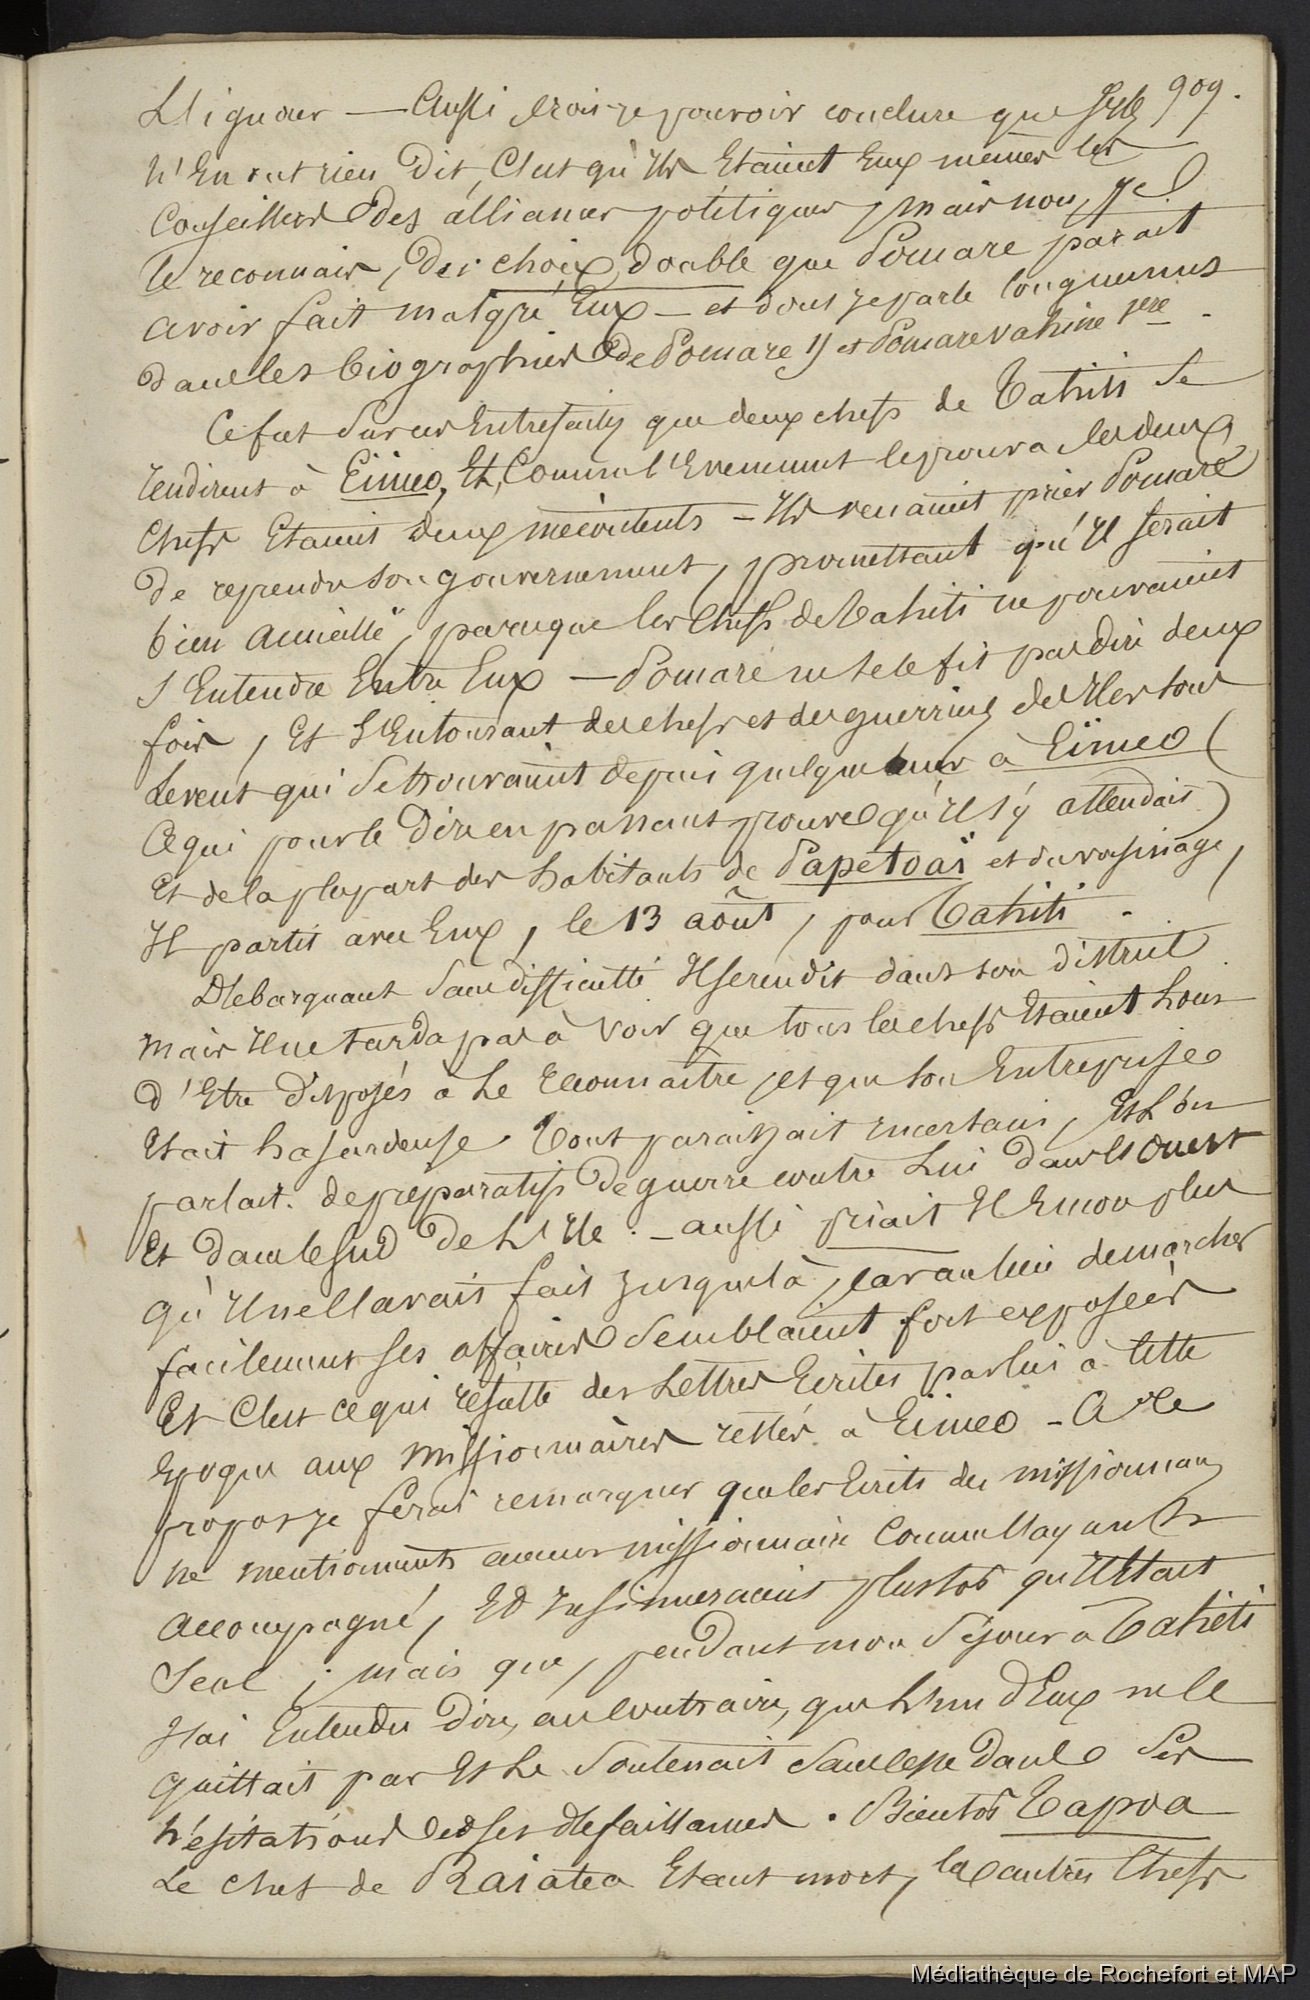 909.
L'ignorer — Aussi crois-je pouvoir conclure que s'ils
n'en ont rien dit, C'est qu'Ils Etaient Eux mêmes les
Conseillers des alliances politiques, mais non, je
le reconnais, des choix double que Pomare parait
avoir fait malgré Eux — et dont je parle longuement
dans les biographies de Pomare II et Pomare vahine 1ere.
Ce fut sur ces Entrefaits que deux chefs de Tahiti se
rendirent à Eimeo, Et, Comme l'Evenement le prouva les deux
Chefs Etaient deux mécontents — Ils venaient prier Pomare
de reprendre son gouvernement, promettant qu'Il serait
bien accueilli, parceque les Chefs de Tahiti ne pouvaient
s'Entendre Entre Eux — Pomaré ne se le fit pas dire deux
fois, Et s'Entourant des chefs et des guerriers des Iles sous
le vent qui se trouvaient depuis quelque tems à Eïmeo (
Ce qui pour le dire en passant prouve qu'Il s'y attendait)
Et de la plupart des habitants de Papetoaï et du voisinage,
Il partit avec Eux, le 13 août, pour Tahiti.
Debarquant sans difficulté Il se rendit dans son district
mais Il ne tarda pas à voir que tous les chefs Etaient Loin
d'Etre disposés à Le reconnaitre, et que son Entreprise
Etait hasardeuse. Tout paraissait incertain, Et L'on
parlait de préparatifs de guerre contre Lui dans l'ouest
Et dans le sud de L'Ile. — aussi priait Il Encor plus
qu'Il ne l'avait fait jusque là, car au lieu de marcher
facilement ses affaires semblaient fort exposées
Et C'est ce qui résulte des Lettres Ecrites par lui à cette
Epoque aux missionnaires restés à Eimeo — A ce
propos je ferai remarquer que les Ecrits des missionnaires
ne mentionnent aucun missionnaire comme l'ayant
accompagné, Et insinueraient plustot qu'Il Etait
Seul ; mais que, pendant mon séjour à Tahiti
J'ai Entendu dire, au contraire, que L'un d'Eux ne le
quittait pas Et Le soutenait sans cesse dans ses
hésitations et ses defaillances. Bientot Tapoa
Le chef de Raiatea Etant mort, les autres Chefs
Médiathèque de Rochefort et MAP